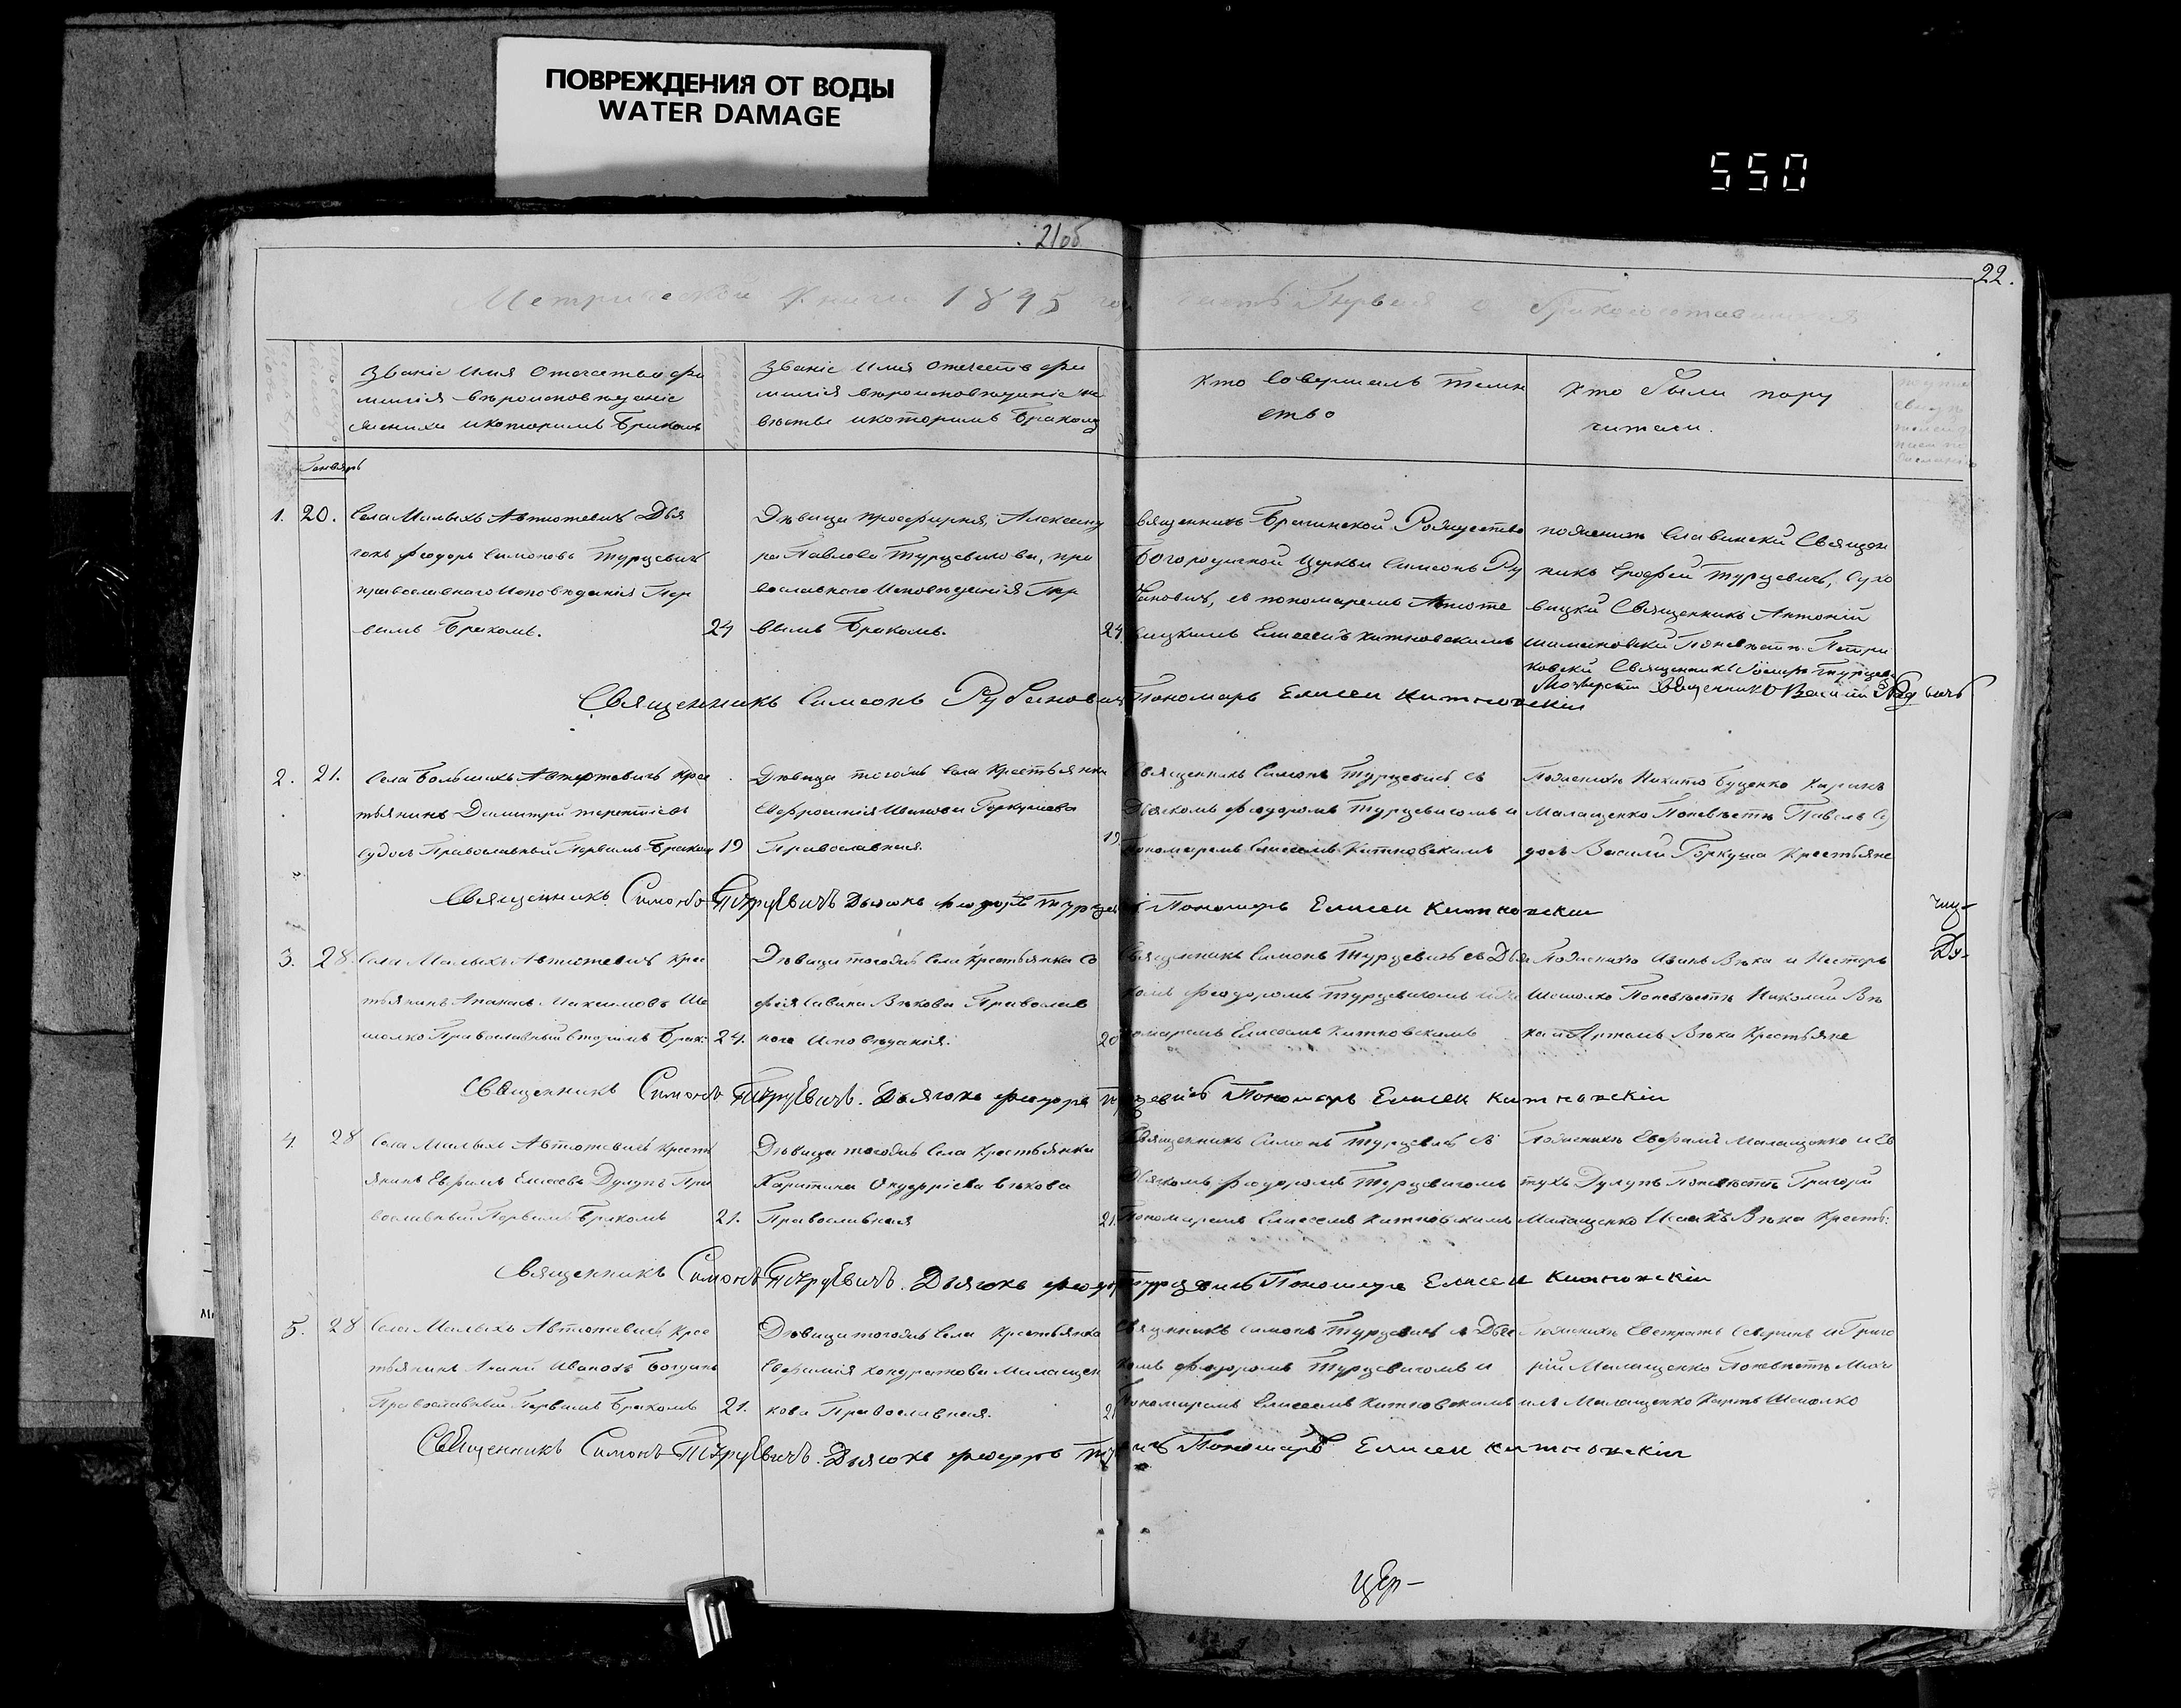 ПОВРЕЖДЕНИЯ ОТ ВОДЫ
WATER DAMAGE
550
21об
22.
Метрической Книги 1845 года часть Первая о
Званіе Имя Отечество фа
милія вѣроисповѣданіе
жениха и которимъ Бракомъ
Званіе Имя Отечеств фа
милія вѣроисповѣданіе не
вѣсты и которимъ Бракомъ
Кто Совершалъ таин
ство
Кто были пору
чители.
Генварь
1. 20.
Села Малыхъ Автютевичъ Дья
чокъ Феодоръ Симоновъ Турцевичъ
православнаго Исповѣданія Пер
вымъ Бракомъ.
24
Дѣвица просфирня, Александ
ра Павлова Турцевичова, пра
вославного Исповѣданія Пер
вымъ Бракомъ.
24
Священникъ Брагинской Рождество
Богородичной Церкви Симеонъ Ру
бановичъ, съ пономаремъ Автюте
вицкимъ Елисеемъ Китновскимъ
по женихѣ Славински Священ
никъ Ерофей Турцевичъ, Сухо
вицки Священникъ Антоній
Поневѣстѣ Петри
ковски Священникъ Іосифъ Турцеви
Священникъ Симеонъ Рубановичъ Пономарь Елисеи Китновскіи
2. 21.
Села Большихъ Автютевичъ крес
тьянинъ Димитри терентіевъ
Судосъ Православный Первымъ Бракомъ
19
Дѣвица тогожъ села Крестьянка
Евфросинія Иванова Горкушова
Православная.
19
Священникъ Симонъ Турцевичъ съ
Дьячкомъ Феодоромъ Турцевичомъ и
Пономаремъ Елисеемъ Китновскимъ
Поженихѣ Никита Буценко Карпъ
Малащенко Поневѣстѣ Павелъ Су
досъ Васили Горкуша Крестьяне
Священникъ Симонъ Турцевичъ Дьячокъ Феодоръ Турцевичъ Пономарь Елисеи Китновскіи
3. 28.
Села Малыхъ Автютевичъ крес
тьянинъ Апанасъ Максимовъ Ше
молко Православный вторымъ Брак:
24.
Дѣвица тогожъ Села Крестьянка Со
фія Савина Вѣкова Православ
ного Исповѣданія.
20
Священникъ Симонъ Турцевичъ съ Дья
чкомъ Феодоромъ Турцевичомъ и По
номаремъ Елисеемъ Китновскимъ
Поженихѣ Иванъ Вѣка и Несторъ
Шемолко Поневѣстѣ Николаи Вѣ
ка и Артемъ Вѣка Крестьяне
Священникъ Симонъ Турцевичъ. Дьячокъ Феодоръ Турцевичъ Пономарь Елисеи Китновскіи
4 28
Села Малыхъ Автютевичъ Кресть
янинъ Ефимъ Елисеевъ Дулупъ Пра
вославный Первымъ Бракомъ
21.
Дѣвица тогожъ Села Крестьянка
Харитина Вѣкова
Православная
21.
Священникъ Симонъ Турцевичъ съ
Дьячкомъ Феодоромъ Турцевичомъ
Пономаремъ Елисеемъ Китновскимъ
Поженихѣ Малащенко и Ев
тухъ Дулупъ Поневѣстѣ Григорій
Малащенко Исаакъ Вѣка Кресть:
Священникъ Симонъ Турцевичъ. Дьячокъ Феодоръ Турцевичъ Пономарь Елисеи Китновскіи
5. 28
Села Малыхъ Автютевичъ Крес
тьянинъ Ананій Ивановъ Богданъ
Православный Первымъ Бракомъ
21.
Дѣвица тогожъ Села Крестьянка
Евфимія Кондраткова Малащен
кова Православная.
21
Священникъ Симонъ Турцевичъ съ Дья
чкомъ Феодоромъ Турцевичомъ и
Пономаремъ Елисеемъ Китновскимъ
Поженихѣ Евстратъ Северинъ и Григо
рій Малащенко Поневѣстѣ Миха
илъ Малащенко Карпъ Шемолко
Священникъ Симонъ Турцевичъ. Дьячокъ Феодоръ Турцевичъ Пономарь Елисеи Китновскіи
Ду-
Цер-